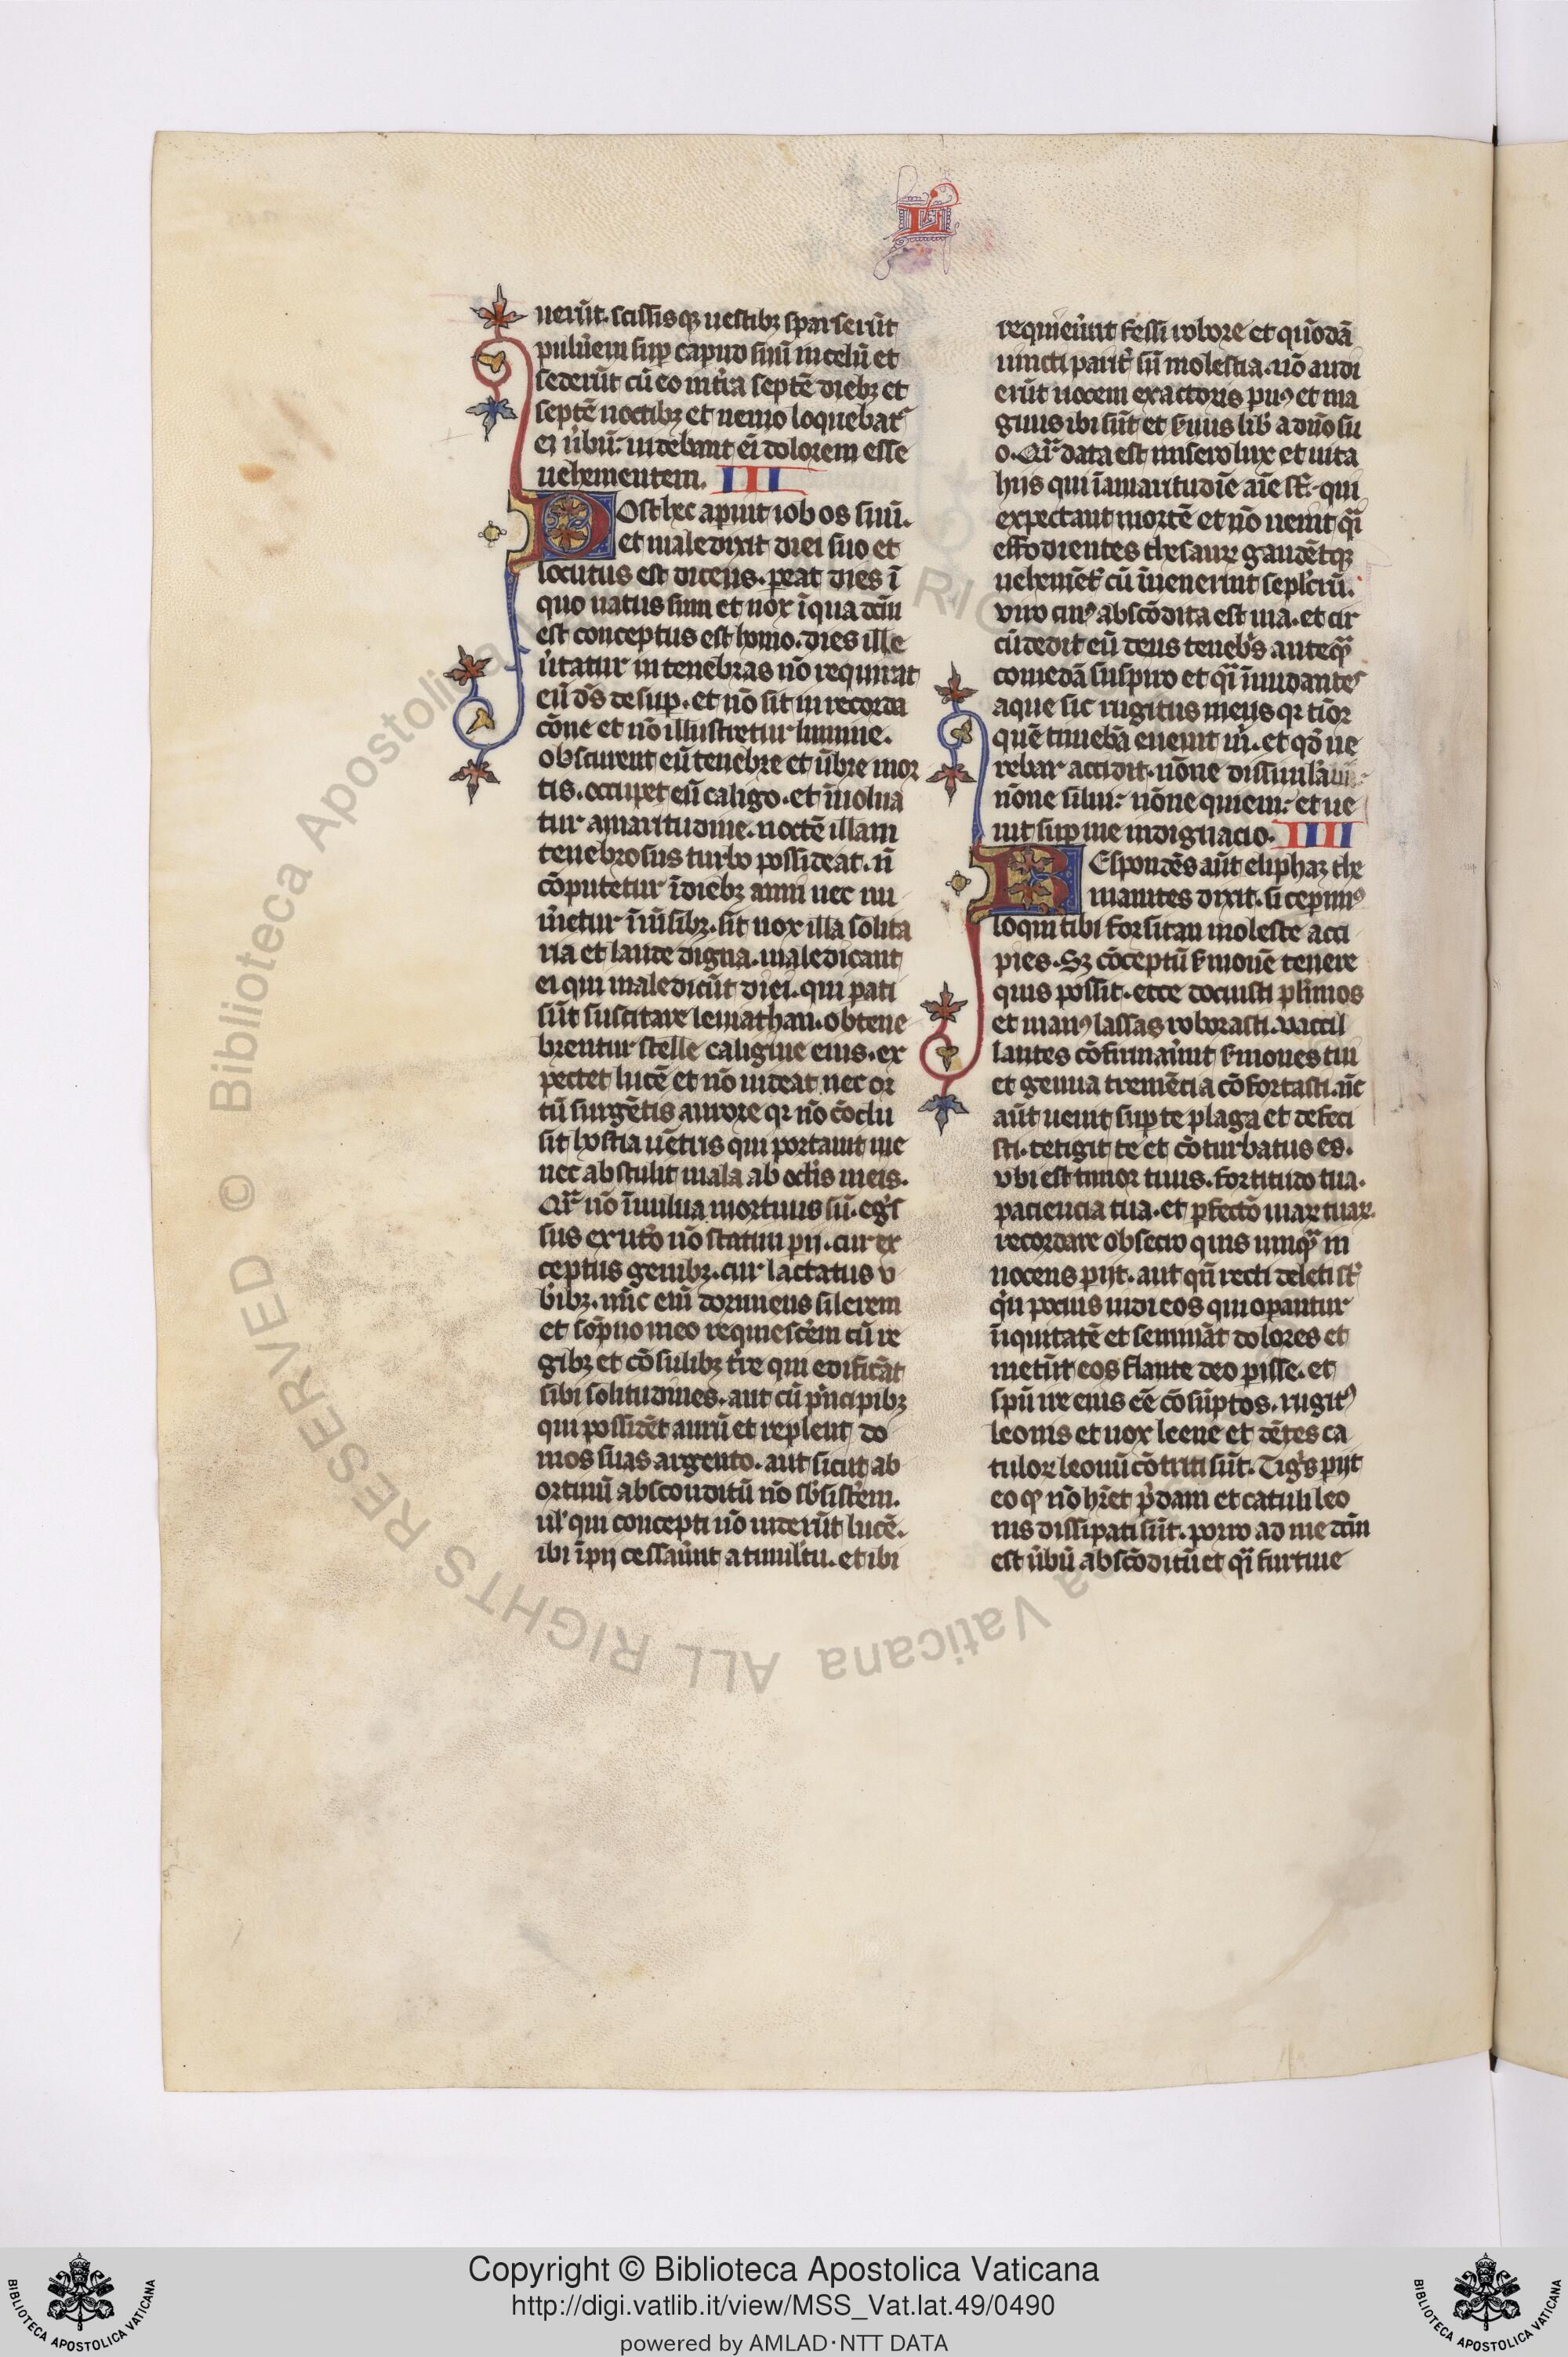 L
uerūt. scissisqꝫ uestibꝫ sparserūt
puluẻm suꝑ capud suū in celū et
sederūt cū eo in tr̃a septē diebꝫ et
septē noctibꝫ et nemo loquebat᷑
ei ủbū: uidebant eī dolorem esse
uehementem. III
Post hec aperuit iob os suū.
et maledixit diei suo et
locutus est dicens. ꝑeat dies ī
quo natus sum et nox ī qua dc̄m
est conceptus est homo. dies ille
ủtatur in tenebras nō requirat
eū dẽ desuꝑ. et nō sit in recorda
cōne et nō illustretur lumine.
obscurent eū tenebre et ūbre mor
tis. occupet eū caligo. et īuolua
tur amaritudine. noctē illam
tenebrosus turbo possideat. ñ
cōputetur ī diebꝫ anni nec nu
ủmetur ī mẽsibꝫ. sit nox illa solita
ria et laude digna. maledicant
ei qui maledicūt diei. qui pati
sūt suscitare leuiathan. obtene
brentur stelle caligine eius. ex
pectet lucē et nō uideat nec or
tū surgētis aurore qꝛ nō cōclu
sit hostia uētris qui portauit me
nec abstulit mala ab oclīs meis.
Qr̃ nō ī uulua mortuus sū. egͥs
sus ex utͦo nō statim ꝑij. cur ex
ceptus genibꝫ. cur lactatus u
b̉ibꝫ. nūc eiū dormiens silerem
et sop̄no meo requiesc̉em cū re
gibꝫ et cōsulibꝫ tr̃e qui edificāt
sibi solitudines. aut cū pͥncipibꝫ
qui possidēt aurū et replent do
mos suas argento. aut sicut ab
ortiuū absconditū nō sb̉sist̉em.
ul' qui concepti nō uiderūt lucē.
ibi īpij cessauẻnt a tumultu. et ibi
requieủunt fessi robore et quōdā
uincti parit̉ sn̄ molestia. nō audi
erūt uocem exactoris puꝰ et ma
gnus ibi sūt et s̉uus lib̉ a dn̄o su
o. Qr̃ data est misero lux et uita
hijs qui ī amaritudīe aīe st̄: qui
expectant mortē et nō uenit qͣi
effodientes thesaurꝫ gaudētqꝫ
uehemēt̉ cū īuenerint seplc̉rū.
viro cuiꝰ abscōdita est uia. et cir
cūdedit eū deus tenebͥs anteqͣꝫ
comedā suspiro et qͣi īundantes
aque sic rugitus meus qꝛ tīor
quē timebā euenit m̉. et qd̄ ue
rebar accidit. nōne dissimulaui:
nōne silui: nōne quieui: et ue
nit suꝑ me indignacio. IIII
Respondēs aūt eliphaz the
manites dixit. si ceperimꝰ
loqui tibi forsitan moleste acci
pies. Sꝫ cōceptū s̉monē tenere
quis possit. ecce docuisti pl'imos
et manꝰ lassas roborasti. vacil
lantes cōfirmauẻunt s̉mones tui
et genua tremēcia cōfortasti. nc̄
aūt uenit suꝑ te plaga et defeci
sti. tetigit te et cōturbatus es.
vbi est timor tuus. fortitudo tua.
paciencia tua. et ꝑfectō uiaꝝ tuaꝝ.
recordare obsecro quis umqͣꝫ in
nocens ꝑijt. aut qn̄ recti deleti st̄
qͥn pocius uidi eos qui opantur
īiquitatē et semināt dolores et
metūt eos flante deo ꝑisse. et
spū ire eius eē cōsūptos. rugitꝰ
leonis et uox leene et dētes ca
tuloꝝ leonū cōtriti sūt. Tigͥs ꝑijt
eo qͦ nō hr̃et p̄dam et catuli leo
nis dissipati sūt. porro ad me dc̄m
est ủbū abscōditū et qͣi furtiue
© Biblioteca Apostolica Vaticana ALL RIGHTS RESERVED
Copyright © Biblioteca Apostolica Vaticana
http://digi.vatlib.it/view/MSS_Vat.lat.49/0490
powered by AMLAD·NTT DATA
BIBLIOTECA APOSTOLICA VATICANA
BIBLIOTECA APOSTOLICA VATICANA